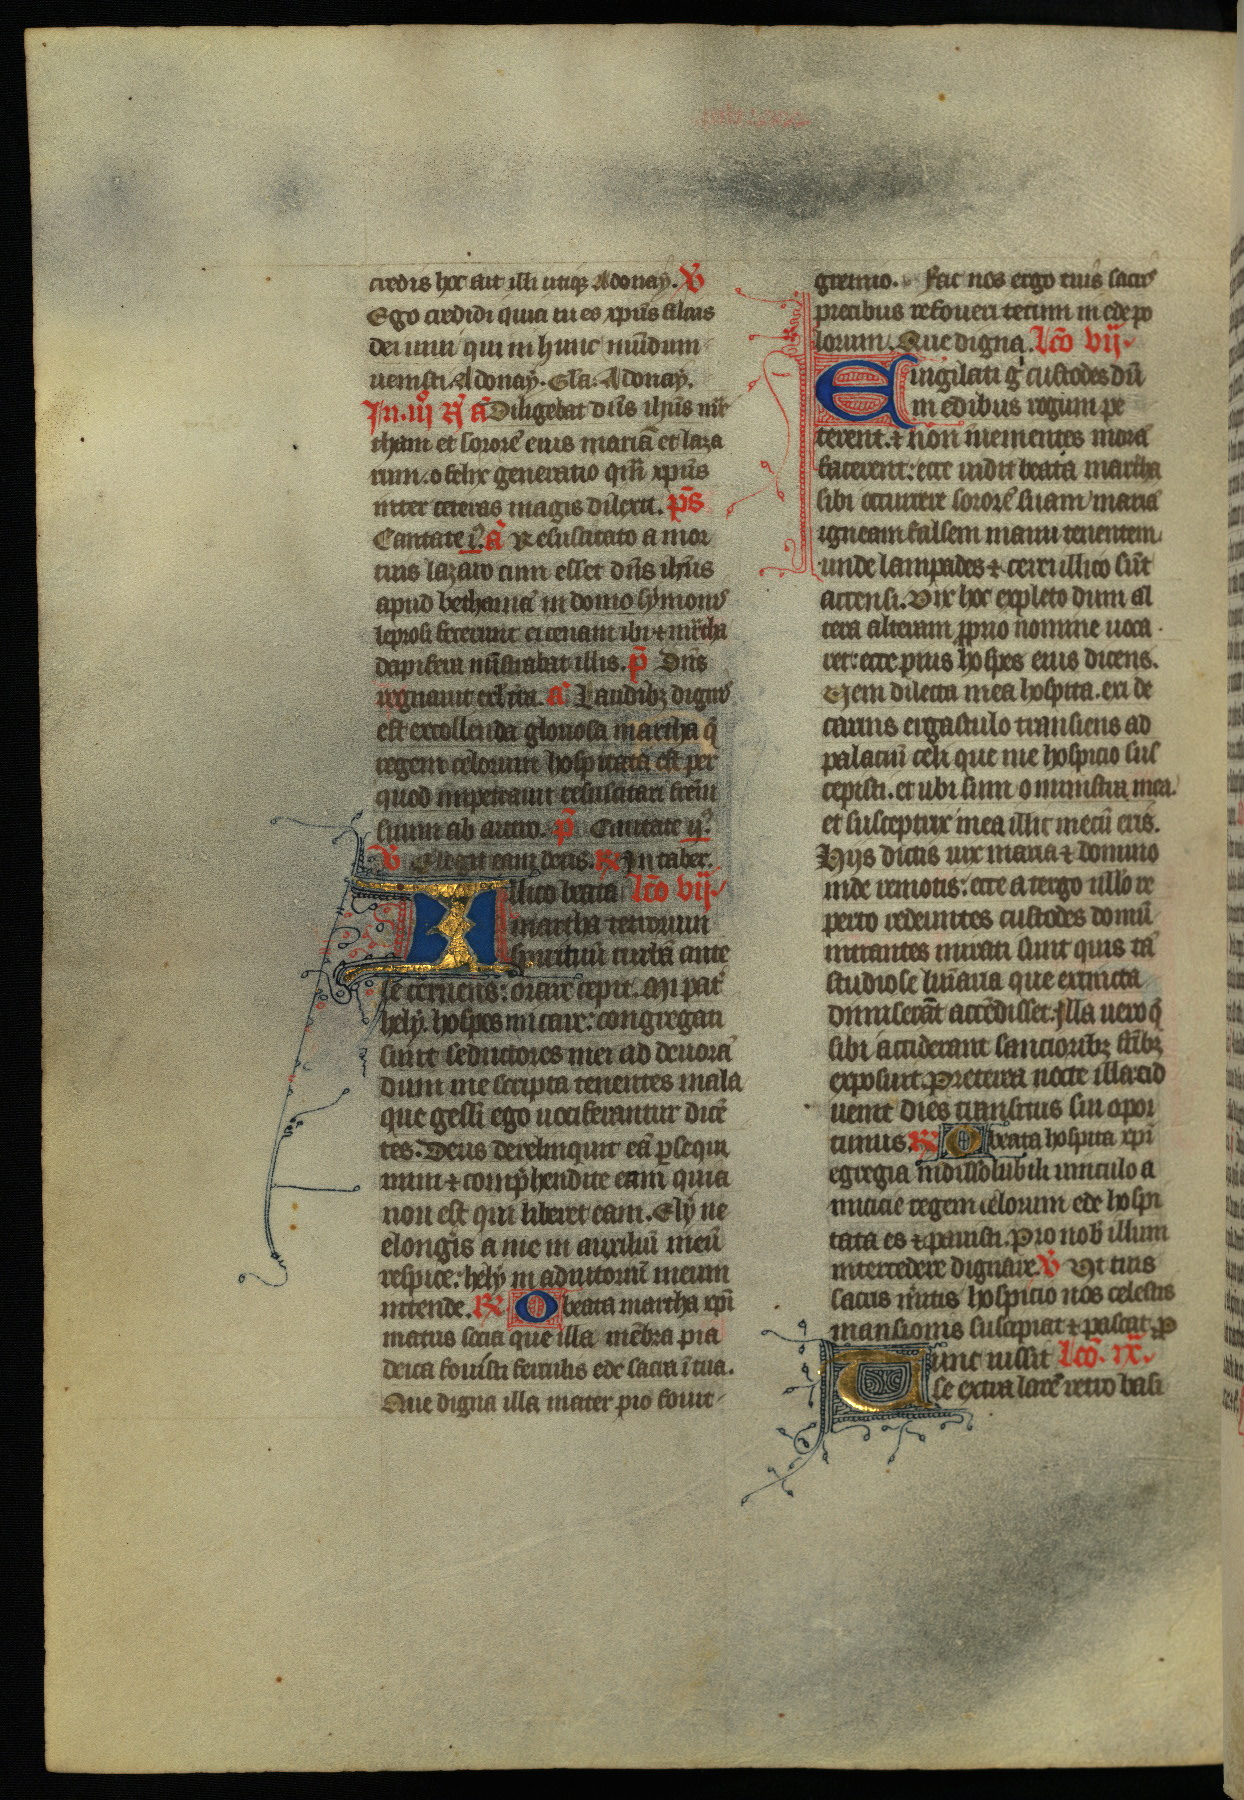 credis hoc ait illi utiq; Adonaÿ. V
Ego credidi quia tu es xp̄us filius
dei uiui qui in hunc mūdum
uenisti. Adonaÿ. Gla. Adonaÿ.
a Diligebat dn̄s ih̄us mr̄
tham et sororē eius mariā et laza
rum. o felix generatio qm̄ xp̄us
inter ceteras magis dilexit. p̄s
Cantate a Resuscitato a mor
tuis lazaro cum esset dn̄s ih̄us
apud bethaniā in domo symonis
leprosi fecerunt ei cenam ibi ⁊ mr̄tha
dapifera mīstrabat illis. p̄ Dn̄s
regnauit a Laudibꝫ dignis
est excollenda gloriosa martha q̄
regem celorum hospitata est per
quod impetrauit resuscitari frēm
suum ab p̄ Cantate
V Elegit eam deus. R In taber.
Illico beata lc̄o vij
martha tetrorum
spirituū turbā ante
se cernens: orare cepit. Mi pat̄
helÿ. hospes mi care: congregati
sunt seductores mei ad deuorā
dum me scripta tenentes mala
que gessi ego uociferantur dicē
tes. Deus dereliquit eā ꝑsequi
mini ⁊ comp̄hendite eam quia
non est qui liberet eam. Elÿ ne
elongēis a me in auxiliū meū
respice: helÿ in adiutoriū meum
intende. R O beata martha xp̄i
matris socia que illa mēbra pia
deica fouisti ferculis ede sacra ī tua.
Que digna illa mater pio fouit
gremio. Fac nos ergo tuis sacris
precibus refoueri tecum in ede po
lorum. Que digna. lc̄o vij.
Euigilati g̾ custodes dū
in edibus rogum pe
terent. ⁊ non inuenientes morā
facerent: ecce uidit beata martha
sibi occurrere sororē suam mariā
igneam falsem manu tenentem
unde lampades ⁊ cerei illico sūt
accensi. Vix hoc expleto dum al
tera alteram ꝓprio nomine uoca
ret: ecce prius hospes eius dicens.
Veni dilecta mea hospita. exi de
carnis ergastulo transiens ad
palaciū celi que me hospicio sus
cepisti. et ubi sum o ministra mea
et susceptrix mea illic mecū eris.
Hÿs dictis uix maria ⁊ domino
inde remotis: ecce a tergo illo re
perto redeuntes custodes domū
intrantes mirati sunt quis tā
studiose luīaria que extincta
dimiserāt accēdisset. Illa uero q̄
sibi acciderant sanctioribꝫ
exposuit. Preterea nocte illa cid
uenit dies transitus sui opor
tunus. R O beata hospita xp̄i
egregia indissolubili uinculo a
micicie regem celorum ede hospi
tata es ⁊ pauisti. Pro nob̄ illum
intercedere dignare. V Vt tuis
sacris mītis hospicio nos celestis
mansionis suscipiat ⁊ pascat. P
Tunc iussit lc̄o. ix.
se extra larē retro basi